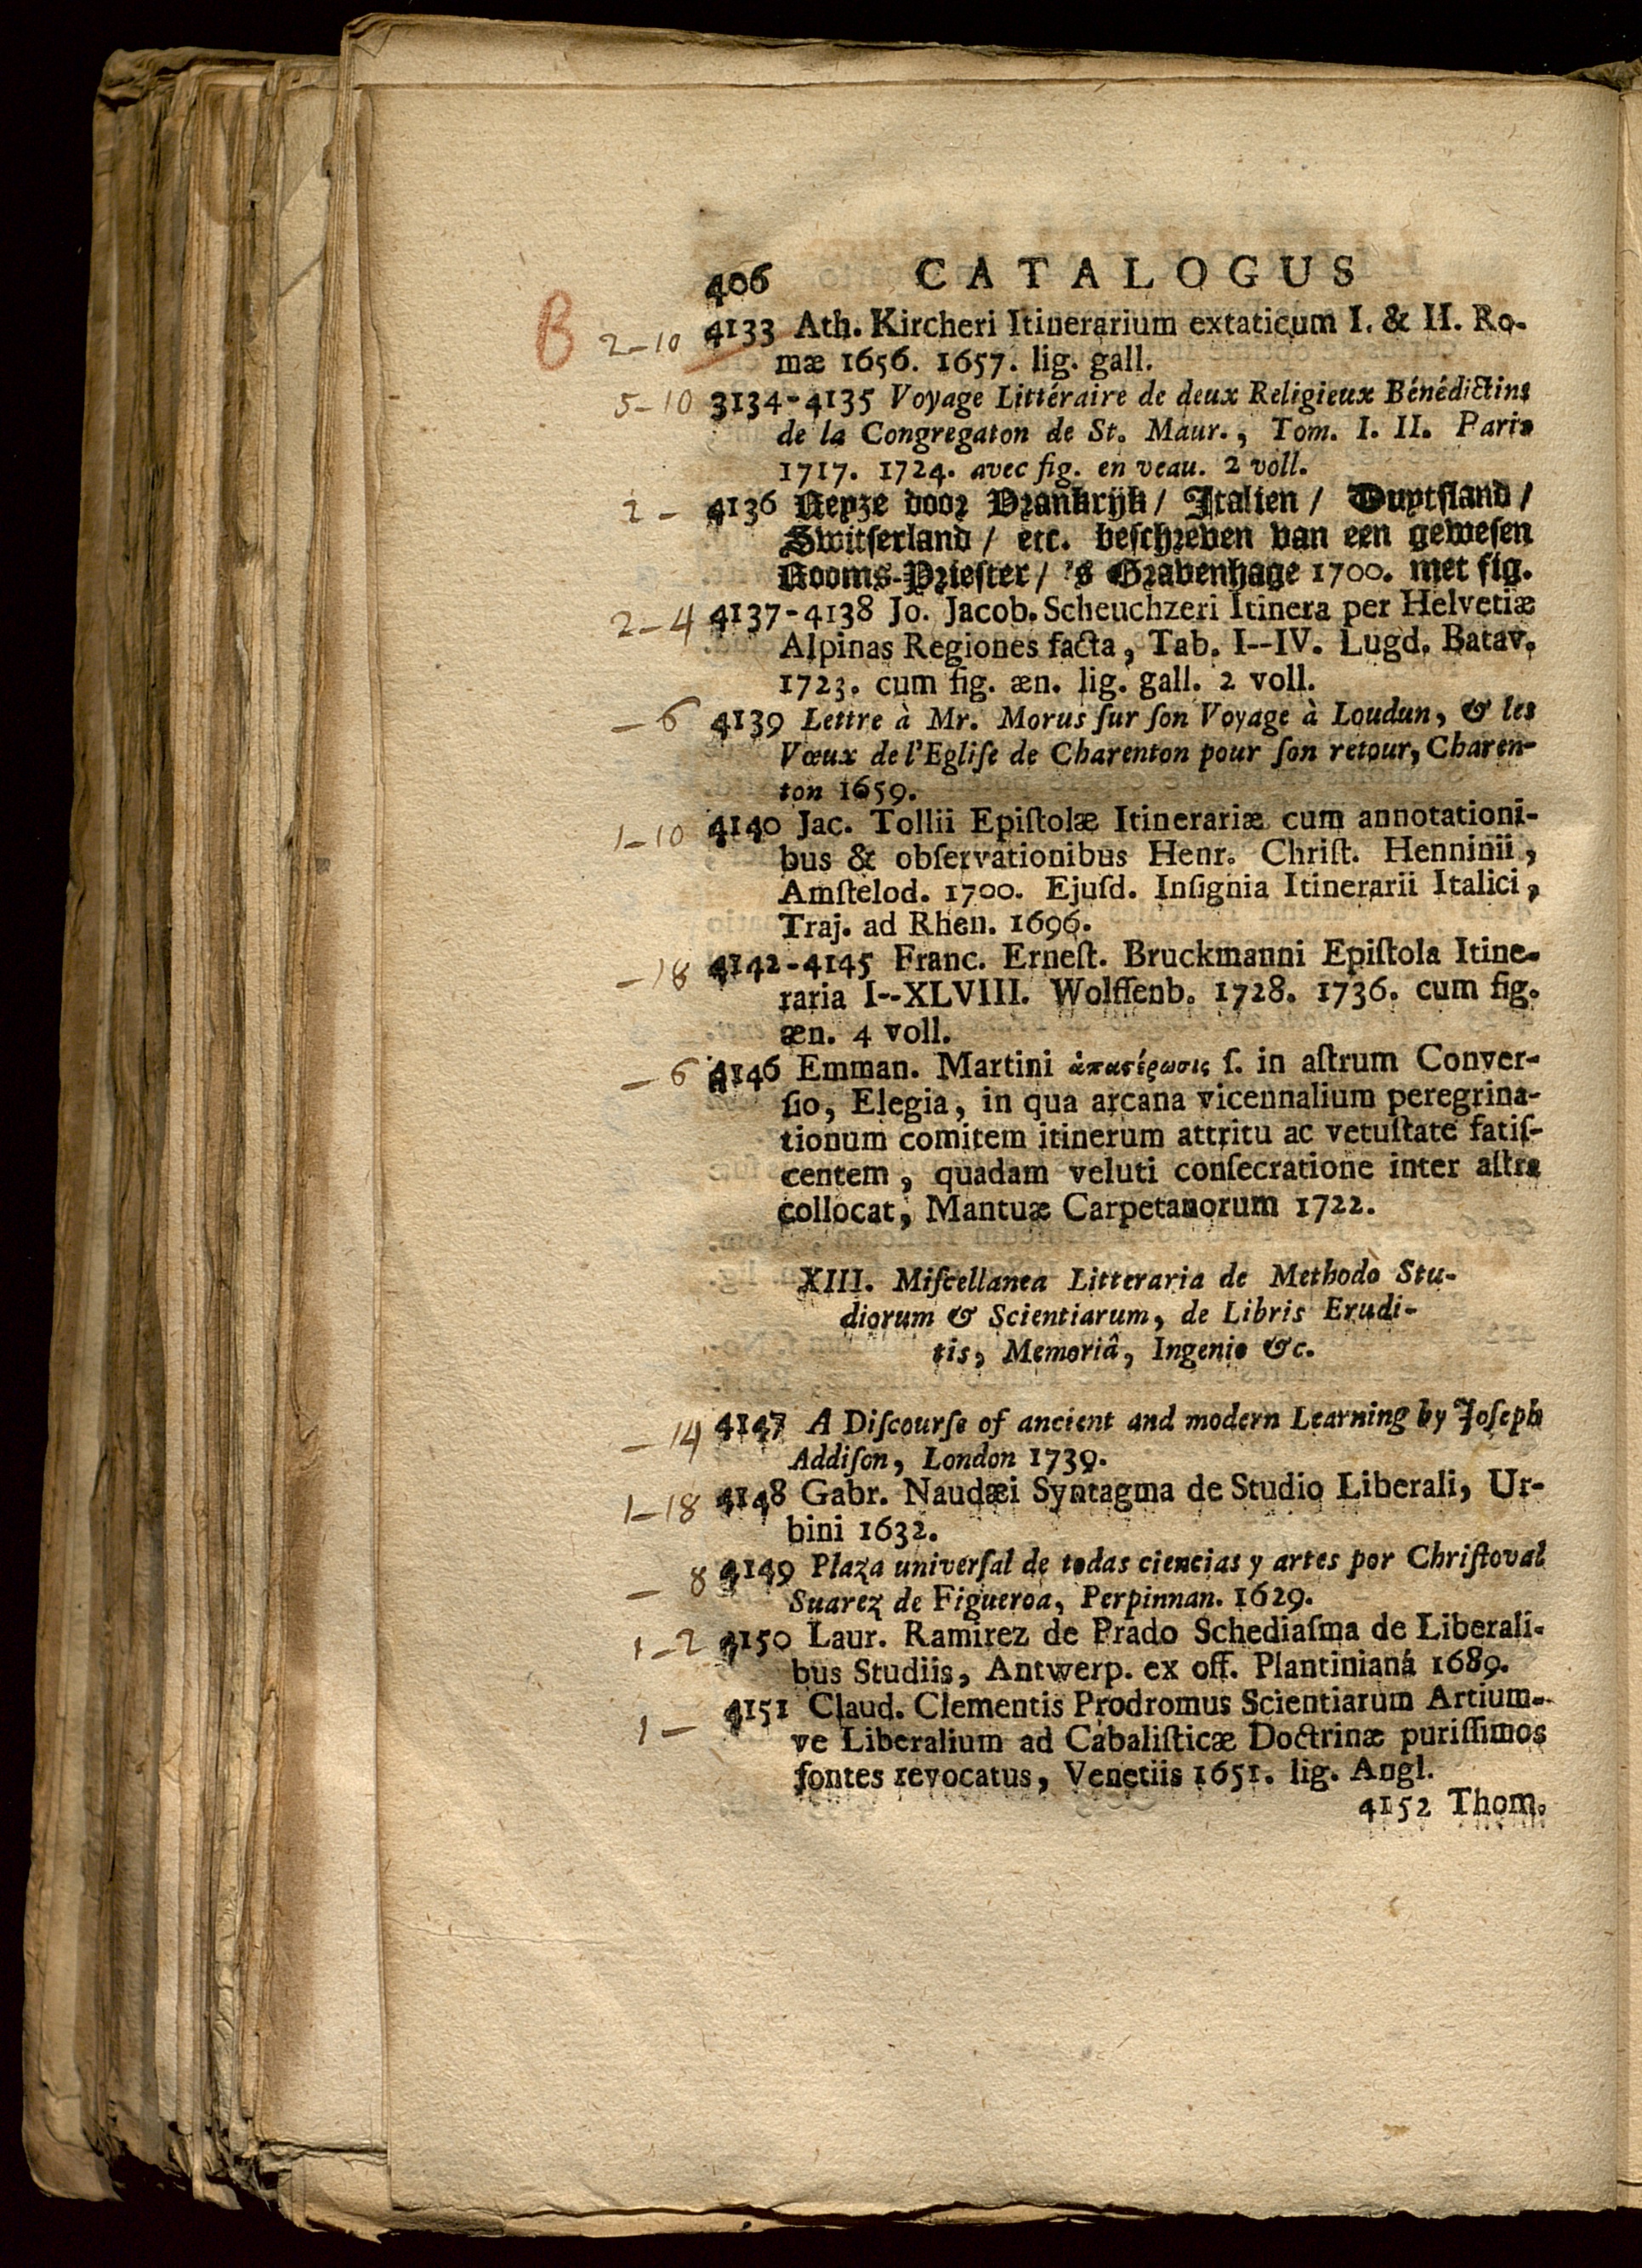 406 CATALOGUS
B 2-10 4133 Ath. Kircheri Itinerarium extaticum I. & II. Ro-
mæ 1656. 1657. lig. gall.
5-10 3134-4135 Voyage Littéraire de deux Religieux Bénédictins
de la Congregaton de St. Maur., Tom. I. II. Paris
1717. 1724. avec fig. en veau. 2 voll.
2- 4136 Reyze door Vrankrijk / Italien / Duytsland /
Switserland / etc. beschreven van een gewesen
Rooms-Priester / 's Gravenhage 1700. met fig.
2-4 4137-4138 Jo. Jacob. Scheuchzeri Itinera per Helvetiæ
Alpinas Regiones facta, Tab. I--IV. Lugd. Batav.
1723. cum fig. æn. lig. gall. 2 voll.
-6 4139 Lettre à Mr. Morus ſur ſon Voyage à Loudun, & les
Vœux de l'Egliſe de Charenton pour ſon retour, Charen-
ton 1659.
1-10 4140 Jac. Tollii Epiſtolæ Itinerariæ cum annotationi-
bus & obſervationibus Henr. Chriſt. Henninii,
Amſtelod. 1700. Ejuſd. Inſignia Itinerarii Italici,
Traj. ad Rhen. 1696.
-18 4142-4145 Franc. Erneſt. Bruckmanni Epiſtola Itine-
raria I--XLVIII. Wolffenb. 1728. 1736. cum fig.
æn. 4 voll.
-6 4146 Emman. Martini ἀπαστέρωσις ſ. in aſtrum Conver-
ſio, Elegia, in qua arcana vicennalium peregrina-
tionum comitem itinerum attritu ac vetuſtate fatiſ-
centem, quadam veluti conſecratione inter aſtra
collocat, Mantuæ Carpetanorum 1722.
XIII. Miſcellanea Litteraria de Methodo Stu-
diorum & Scientiarum, de Libris Erudi-
tis, Memoriâ, Ingenio &c.
-14 4147 A Diſcourſe of ancient and modern Learning by Joſeph
Addiſon, London 1739.
1-18 4148 Gabr. Naudæi Syntagma de Studio Liberali, Ur-
bini 1632.
-8 4149 Plaza univerſal de todas ciencias y artes por Chriſtoval
Suarez de Figueroa, Perpinnan. 1629.
1-2 4150 Laur. Ramirez de Prado Schediaſma de Liberali-
bus Studiis, Antwerp. ex off. Plantinianá 1689.
1- 4151 Claud. Clementis Prodromus Scientiarum Artium-
ve Liberalium ad Cabaliſticæ Doctrinæ puriſſimos
fontes revocatus, Venetiis 1651. lig. Angl.
4152 Thom.